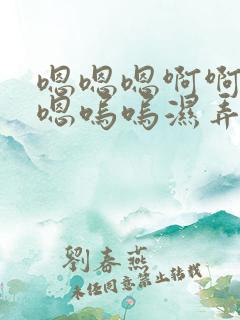 嗯嗯嗯啊啊
嗯嗚嗚濕弄
劉春燕
未经同意禁止转载